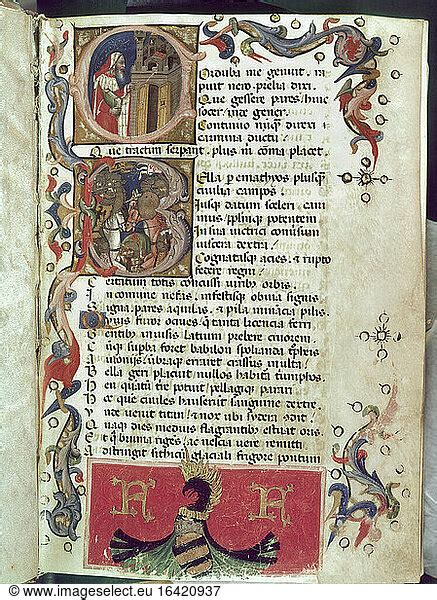 Corduba me genuit. ra
puit nero. prelia dixi.
Que gessere pares/ hinc
socer/ inde gener.
Continuo nuq; direxi
carmina ductu
Que tractim serpant. plus m coma placet.
Bella p emathyos plusq
ciuilia campos
Iusq datum sceleri cani
mus/ plmq; potentem
In sua victrici conuisum
uiscera dextra
Cognatasq; acies. & rupto
federe regni
Certatum totis concussi uirib; orbis
In comune nefas. infestisq; obuia signis
Signa pares aquilas. & pila minancia pilis
Quis furor o ciues/ q tanta licencia ferri
Gentib; inuisis latium prebere cruorem
Cumq; supba foret babilon spolianda tpheis
Ausonijs/ umbraq; erraret crassus multa
Bella geri placuit nullos habitura tumphos
Heu quatu tre potuit/ pellagiq; parari
Hoc que ciules hauserunt sanguine dextre
Unde uenit titan/ & nox ubi sydera odit
Quaq; dies medius flagrantib; estuat oris
Et q bruma riges/ ac nescia uere remitti
Adstringit sithicu glaciali frigore pontum
© imageBROKER.com - 16420937